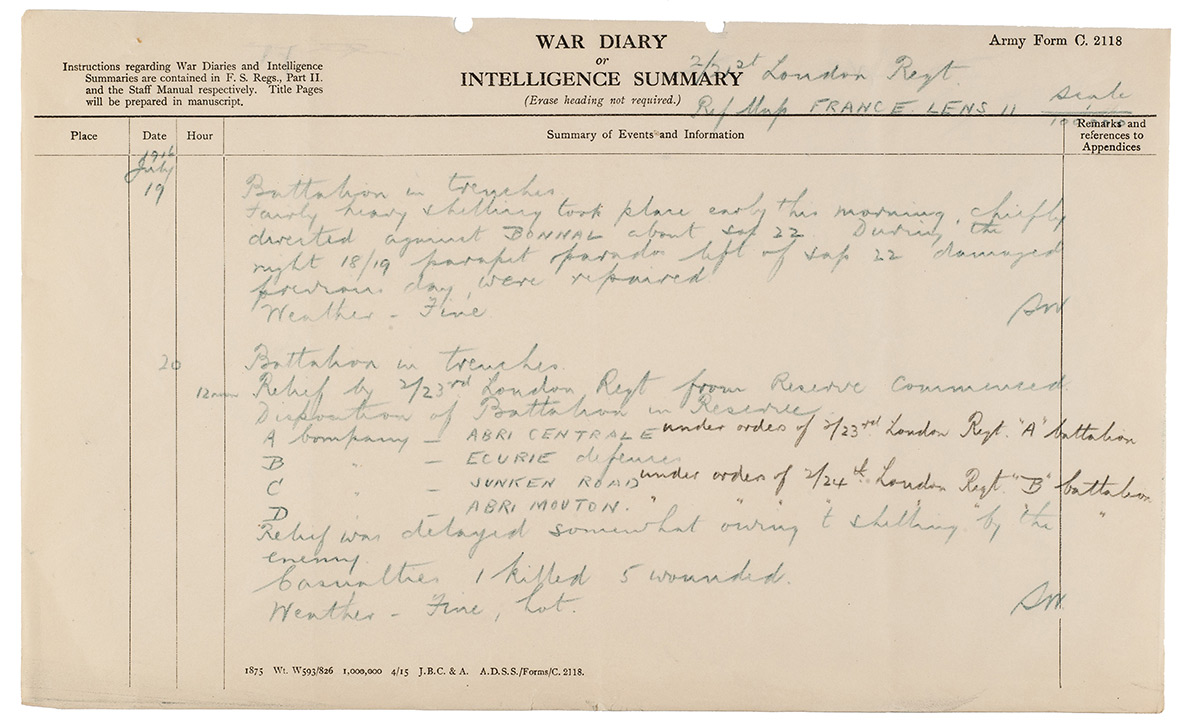 WAR DIARY
or
INTELLIGENCE SUMMARY
(Erase heading not required.)
Army Form C. 2118
Instructions regarding War Diaries and Intelligence
Summaries are contained in F. S. Regs., Part II.
and the Staff Manual respectively. Title Pages
will be prepared in manuscript.
2/21st London Regt.
Ref Map FRANCE. LENS 11 Scale
Place Date Hour Summary of Events and Information Remarks and
references to
Appendices
1916
July
19 Battalion in trenches.
Fairly heavy shelling took place early this morning, chiefly
directed against BONNAL about sap 22. During the
night 18/19 parapet & parados left of sap 22 damaged
previous day, were repaired.
Weather - Fine.
20 Battalion in trenches.
Relief by 2/23rd London Regt from Reserve commenced.
Disposition of Battalion in Reserve,
A Company - ABRI CENTRALE under orders of 2/23rd London Regt. "A" battalion
B " - ECURIE defences
C " - SUNKEN ROAD under orders of 2/24th London Regt. "B" battalion
D - ABRI MOUTON. " " " " "
Relief was delayed somewhat owing to shelling by the
enemy.
Casualties 1 killed 5 wounded.
Weather - Fine, hot.
1875 Wt. W593/826 1,000,000 4/15 J.B.C. & A. A.D.S.S./Forms/C. 2118.